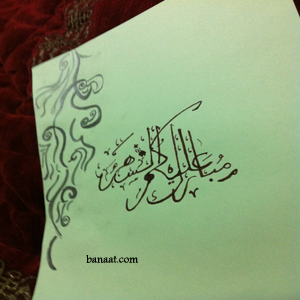 مبارك عليكم الشهر
banaat.com